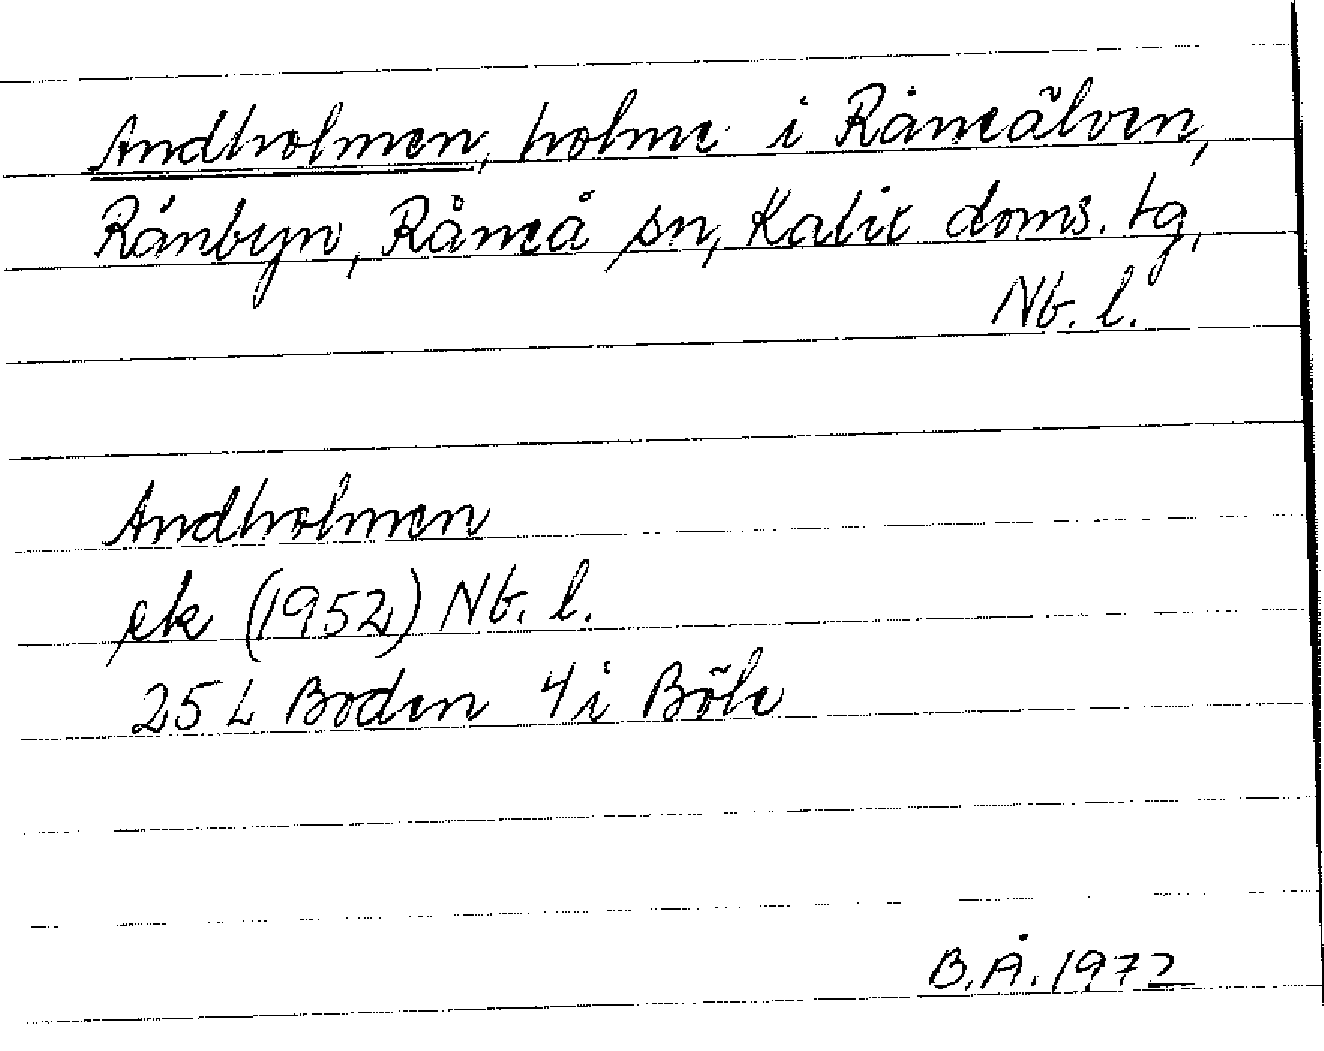 Andholmen, holme i Råneälven,
Rånbyn, Råneå sn, Kalix doms. tg,
Nb. l.
Andholmen
ek (1952) Nb. l.
25 L Boden 4 i Böle
B.Å. 1972